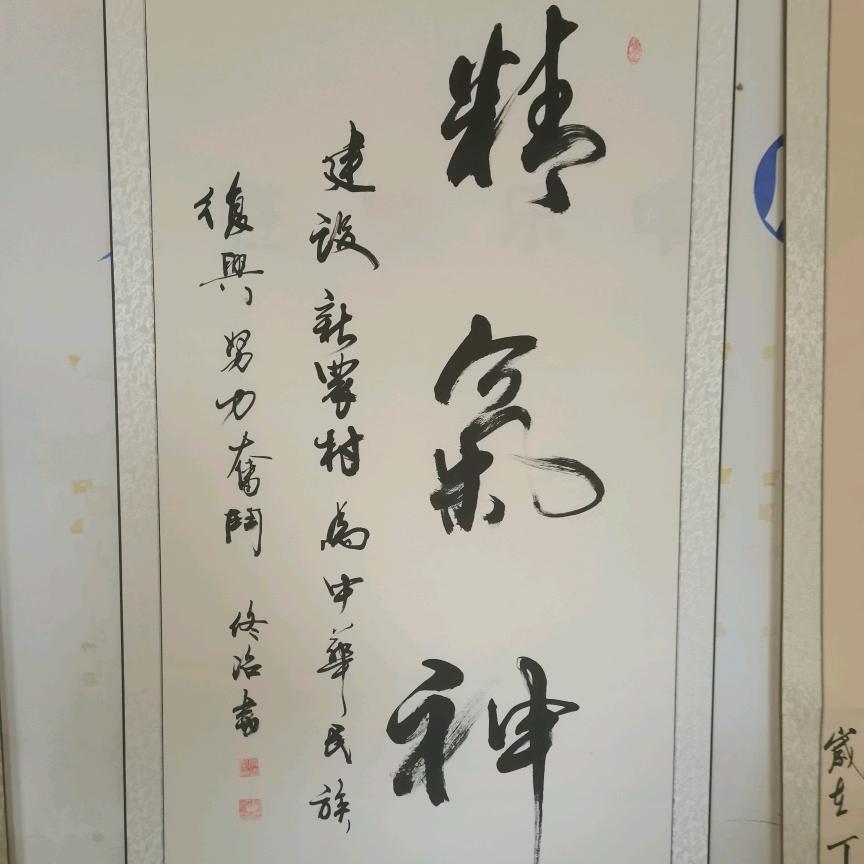 精氣神
建设新農村為中華民族
復興努力奮鬥 佟治書
歲在丁